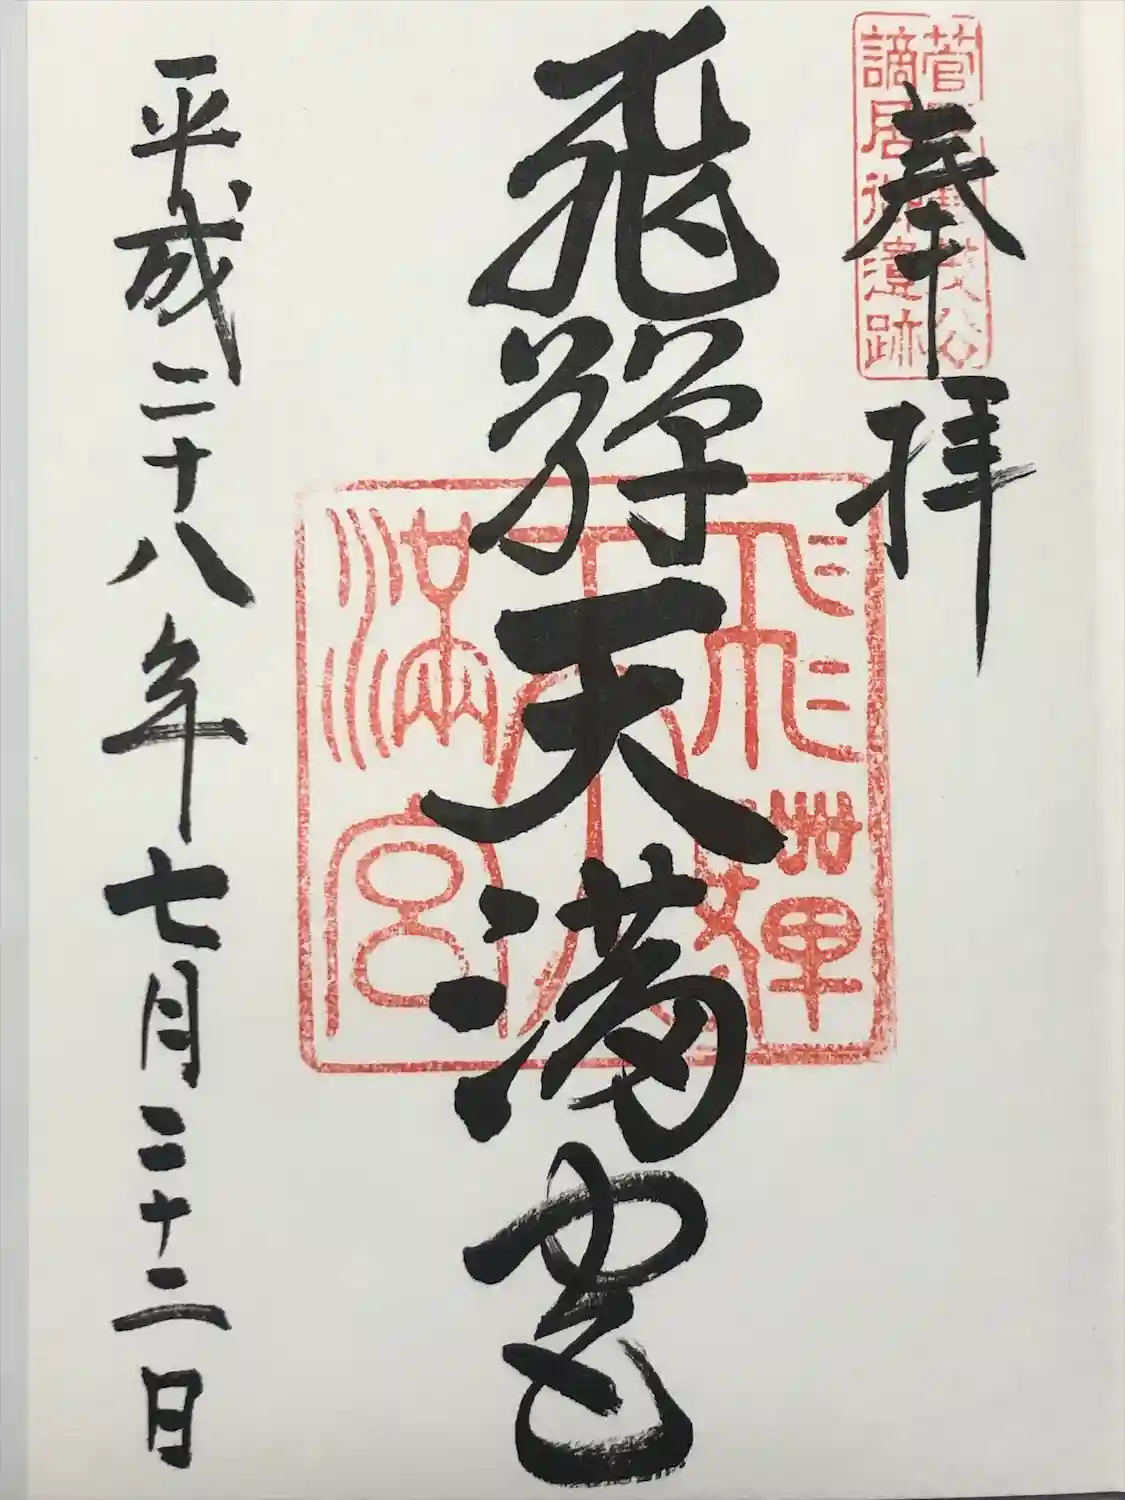 菅原兼茂公
謫居御遺跡
奉拝
飛騨天満宮
飛騨
天
満宮
平成二十八年七月二十二日